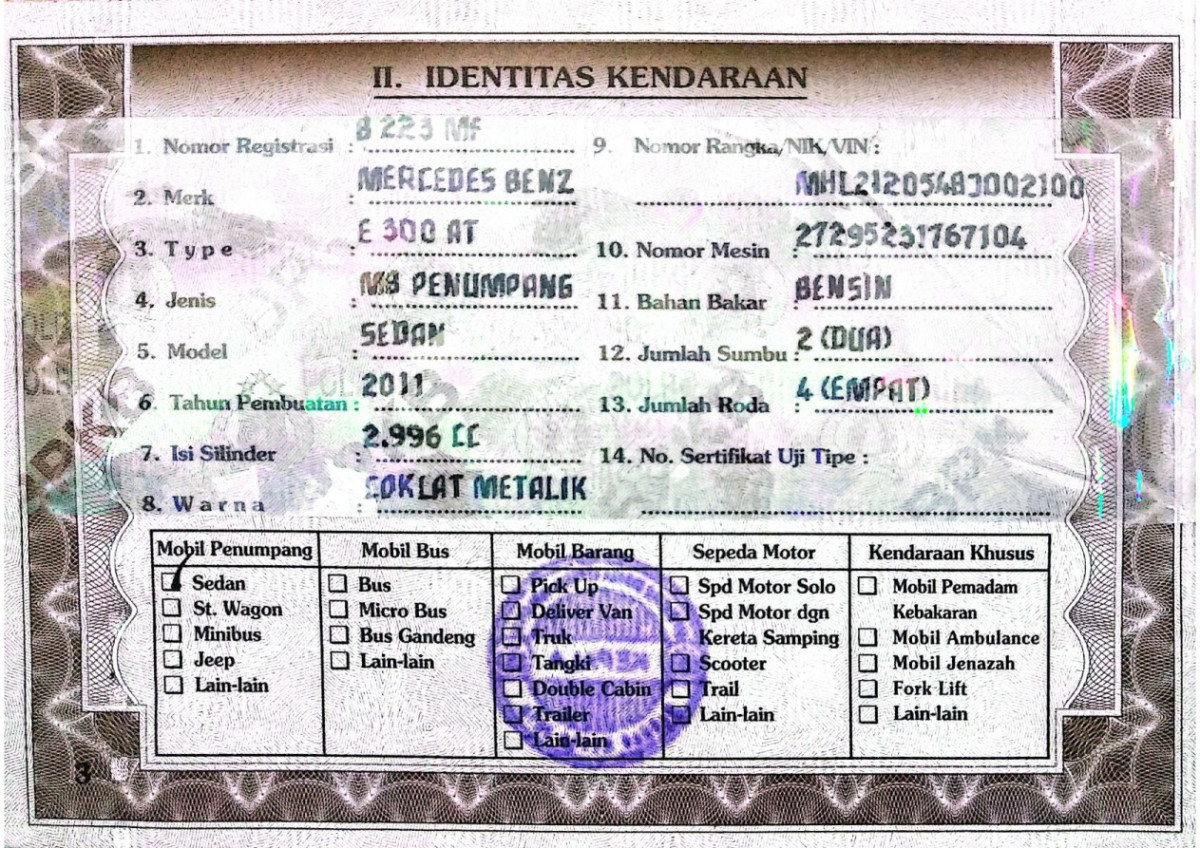 II. IDENTITAS KENDARAAN
1. Nomor Registrasi : B 223 MF
2. Merk : MERCEDES BENZ
3. Type : E 300 AT
4. Jenis : MB PENUMPANG
5. Model : SEDAN
6. Tahun Pembuatan : 2011
7. Isi Silinder : 2.996 CC
8. Warna : COKLAT METALIK
9. Nomor Rangka/NIK/VIN :
MHL212054BJ002100
10. Nomor Mesin : 27295231767104
11. Bahan Bakar : BENSIN
12. Jumlah Sumbu : 2 (DUA)
13. Jumlah Roda : 4 (EMPAT)
14. No. Sertifikat Uji Tipe :
Mobil Penumpang
Sedan
St. Wagon
Minibus
Jeep
Lain-lain
Mobil Bus
Bus
Micro Bus
Bus Gandeng
Lain-lain
Mobil Barang
Pick Up
Deliver Van
Truk
Tangki
Double Cabin
Trailer
Lain-lain
Sepeda Motor
Spd Motor Solo
Spd Motor dgn
Kereta Samping
Scooter
Trail
Lain-lain
Kendaraan Khusus
Mobil Pemadam
Kebakaran
Mobil Ambulance
Mobil Jenazah
Fork Lift
Lain-lain
3